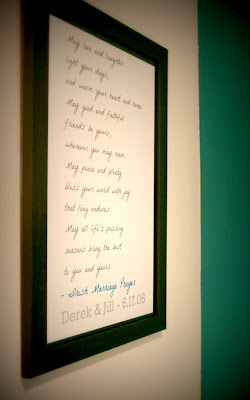 May love and laughter
light your days,
and warm your heart and home.
May good and faithful
friends be yours,
wherever you may roam.
May peace and plenty
bless your world with joy
that long endures.
May all life's passing
seasons bring the best
to you and yours.
- Irish Marriage Prayer
Derek & Jill - 6.17.06